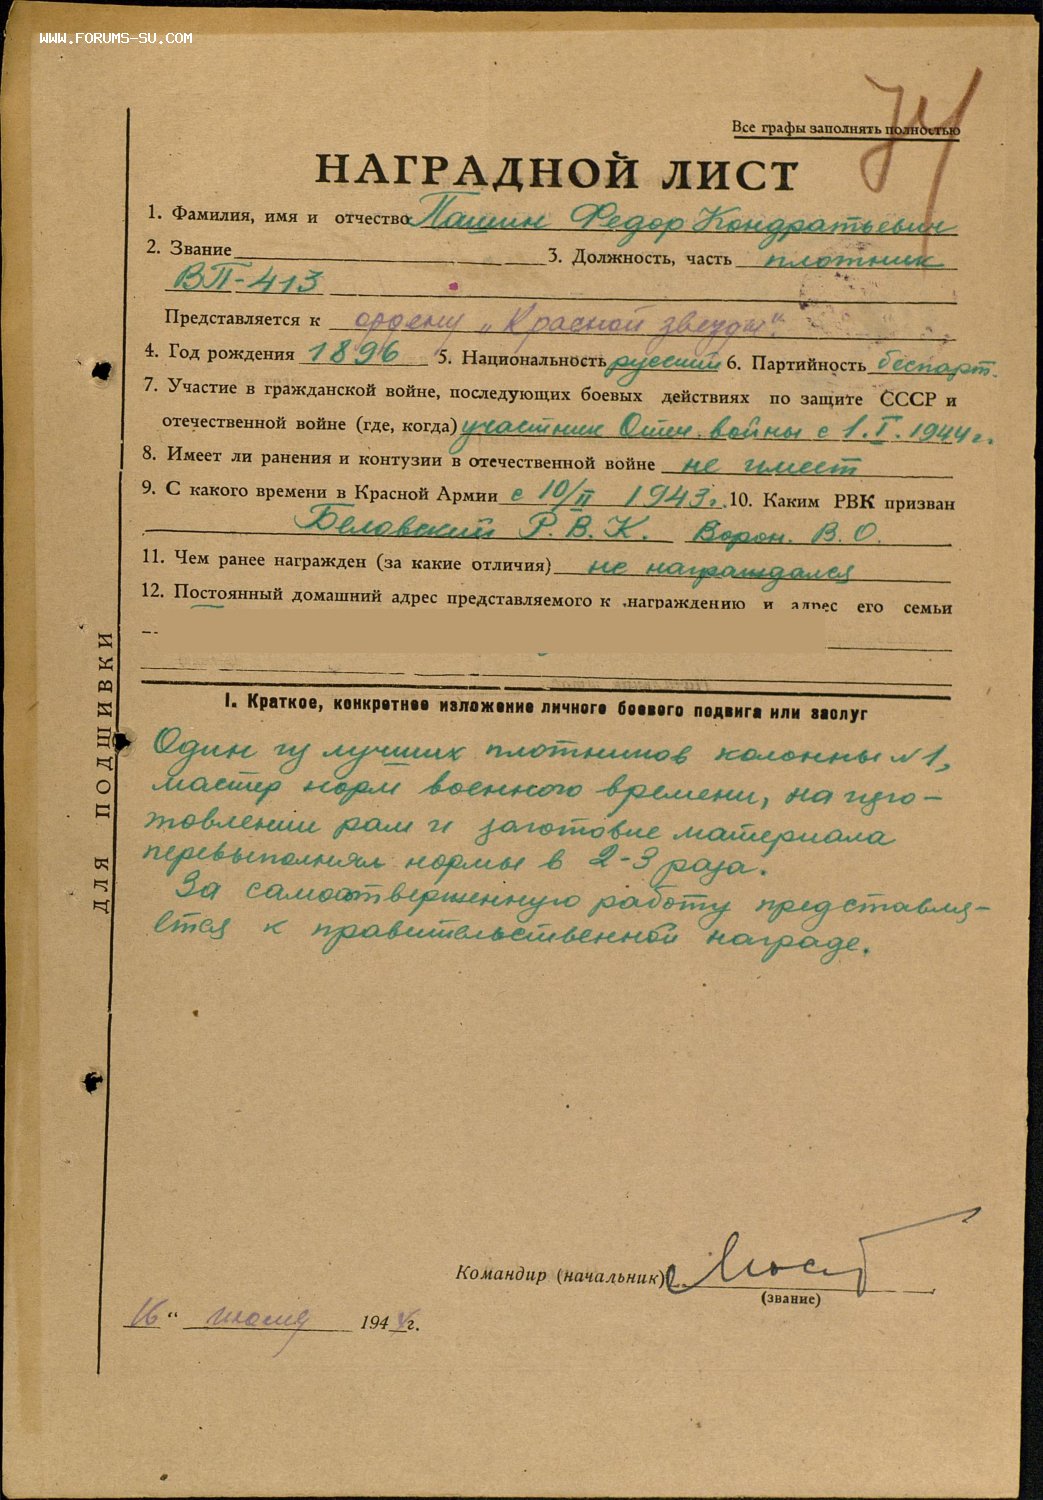 WWW.FORUMS-SU.COM
Все графы заполнять полностью
НАГРАДНОЙ ЛИСТ
1. Фамилия, имя и отчество Пашин Федор Кондратьевич
2. Звание 3. Должность, часть плотник
ВП-413
Представляется к ордену „Красной звезды".
4. Год рождения 1896 5. Национальность русский 6. Партийность беспарт.
7. Участие в гражданской войне, последующих боевых действиях по защите СССР и
отечественной войне (где, когда) участник Отеч. войны с 1.I.1944 г.
8. Имеет ли ранения и контузии в отечественной войне не имеет
9. С какого времени в Красной Армии с 10/II 1943 г. 10. Каким РВК призван
Белавский Р.В.К. Ворон. В.О.
11. Чем ранее награжден (за какие отличия) не награждался
12. Постоянный домашний адрес представляемого к награждению и адрес его семьи
ДЛЯ ПОДШИВКИ
I. Краткое, конкретное изложение личного боевого подвига или заслуг
Один из лучших плотников колонны №1,
мастер норм военного времени, на изго-
товлении рам и заготовке материала
перевыполнял нормы в 2-3 раза.
За самоотверженную работу представля-
ется к правительственной награде.
Командир (начальник)
(звание)
16 " 194 г.